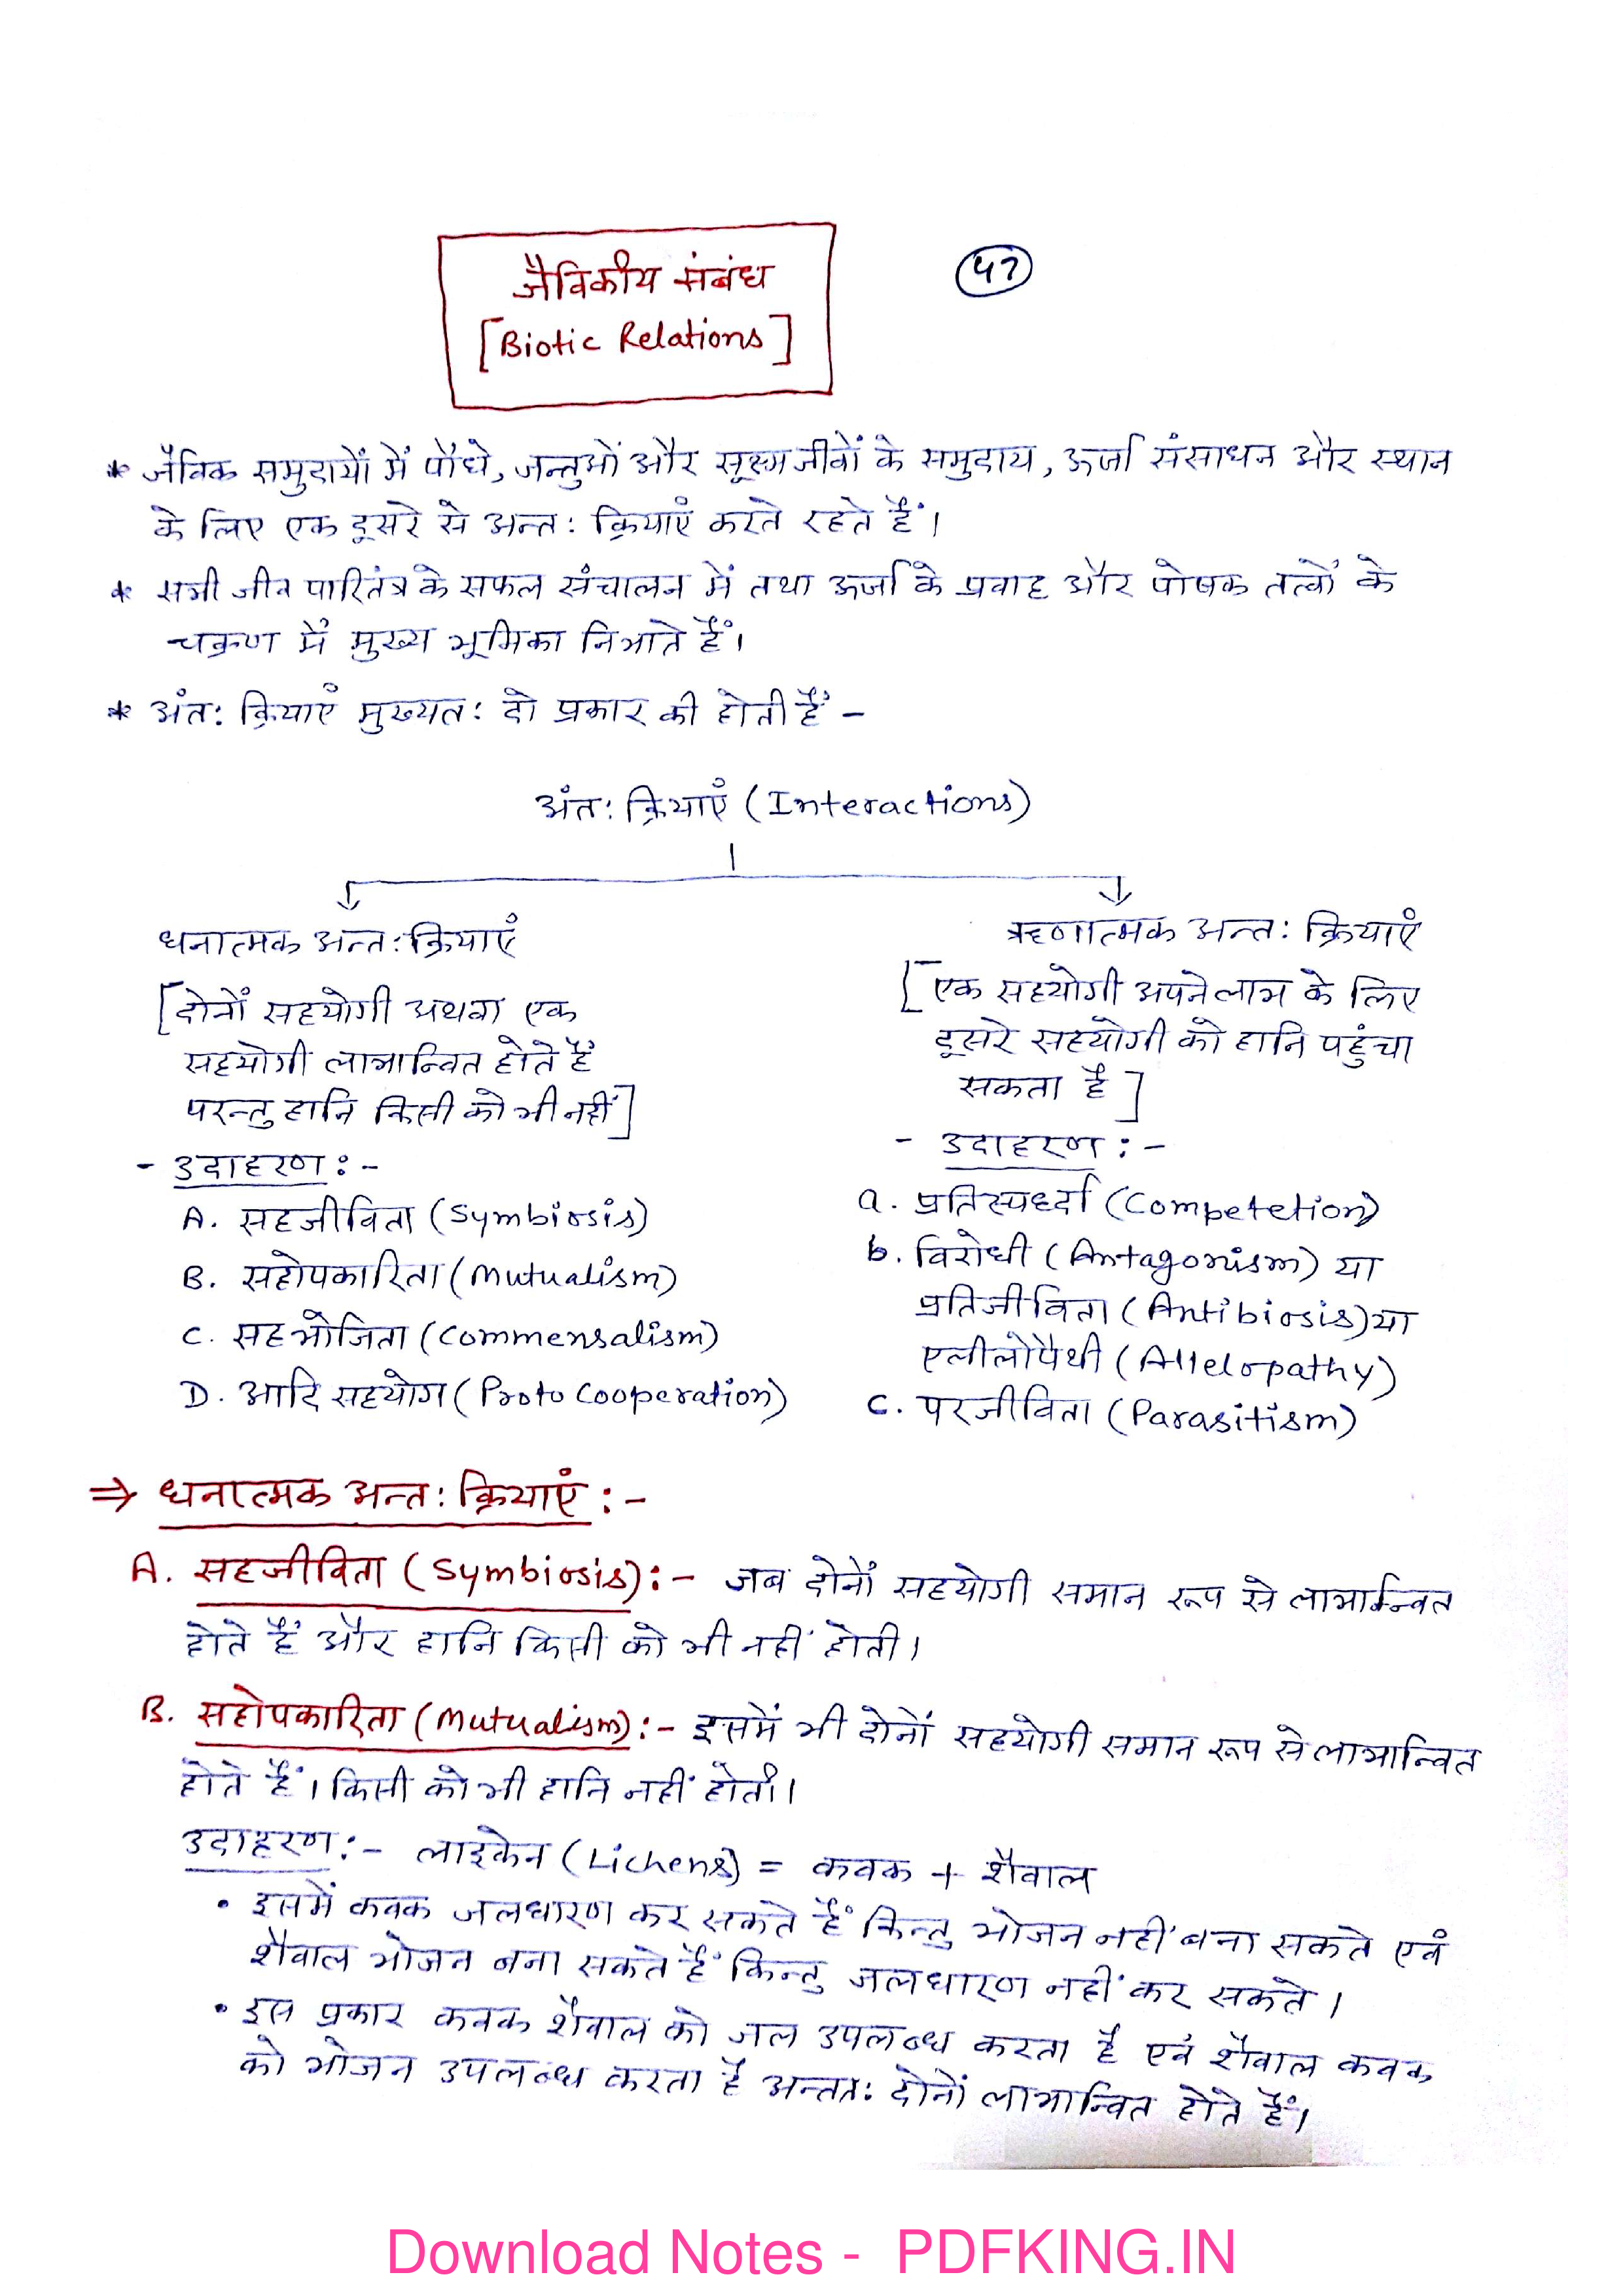 जैविकीय संबंध
[Biotic Relations]
47
* जैविक समुदायों में पौधे, जन्तुओं और सूक्ष्म जीवों के समुदाय, ऊर्जा संसाधन और स्थान
के लिए एक दूसरे से अन्त: क्रियाएं करते रहते हैं।
* सभी जीव पारितंत्र के सफल संचालन में तथा ऊर्जा के प्रवाह और पोषक तत्वों के
चक्रण में मुख्य भूमिका निभाते हैं।
* अंत: क्रियाएं मुख्यत: दो प्रकार की होती हैं -
अंत: क्रियाएं (Interactions)
धनात्मक अन्त: क्रियाएं
[दोनों सहयोगी अथवा एक
सहयोगी लाभान्वित होते हैं
परन्तु हानि किसी को भी नहीं]
- उदाहरण : -
A. सहजीविता (Symbiosis)
B. सहोपकारिता (Mutualism)
C. सहभोजिता (Commensalism)
D. आदि सहयोग (Proto Cooperation)
ऋणात्मक अन्त: क्रियाएं
[एक सहयोगी अपने लाभ के लिए
दूसरे सहयोगी को हानि पहुंचा
सकता है]
- उदाहरण : -
a. प्रतिस्पर्ध्दा (Competetion)
b. विरोधी (Antagonism) या
प्रतिजीविता (Antibiosis) या
एलीलोपैथी (Allelopathy)
C. परजीविता (Parasitism)
⇒ धनात्मक अन्त: क्रियाएं : -
A. सहजीविता (Symbiosis) : - जब दोनों सहयोगी समान रूप से लाभान्वित
होते हैं और हानि किसी को भी नहीं होती।
B. सहोपकारिता (Mutualism) : - इसमें भी दोनों सहयोगी समान रूप से लाभान्वित
होते हैं। किसी को भी हानि नहीं होती।
उदाहरण : - लाइकेन (Lichens) = कवक + शैवाल
• इसमें कवक जलधारण कर सकते हैं किन्तु भोजन नहीं बना सकते एवं
शैवाल भोजन बना सकते हैं किन्तु जलधारण नहीं कर सकते।
• इस प्रकार कवक शैवाल को जल उपलब्ध करता है एवं शैवाल कवक
को भोजन उपलब्ध करता है अन्तत: दोनों लाभान्वित होते हैं।
Download Notes - PDFKING.IN